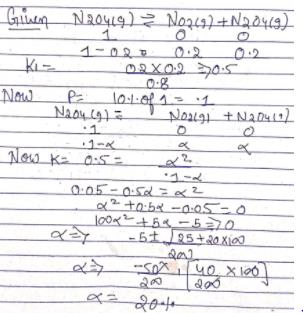 Given N2O4(g) ⇌ NO2(g) + N2O4(g)
1 0 0
1-0.2 = 0.2 0.2
K1 = 0.2 x 0.2 ⇒ 0.5
0.8
Now P = 10% of 1 = .1
N2O4(g) = NO2(g) + N2O4(g)
.1 0 0
.1-α α α
Now K = 0.5 = α²
.1-α
0.05 - 0.5α = α²
α² + 0.5α - 0.05 = 0
100α² + 5α - 5 ⇒ 0
α ⇒ -5 ± √25 + 20 x 100
200
α ⇒ -50 x [40 x 100]
200 200
α = 20%